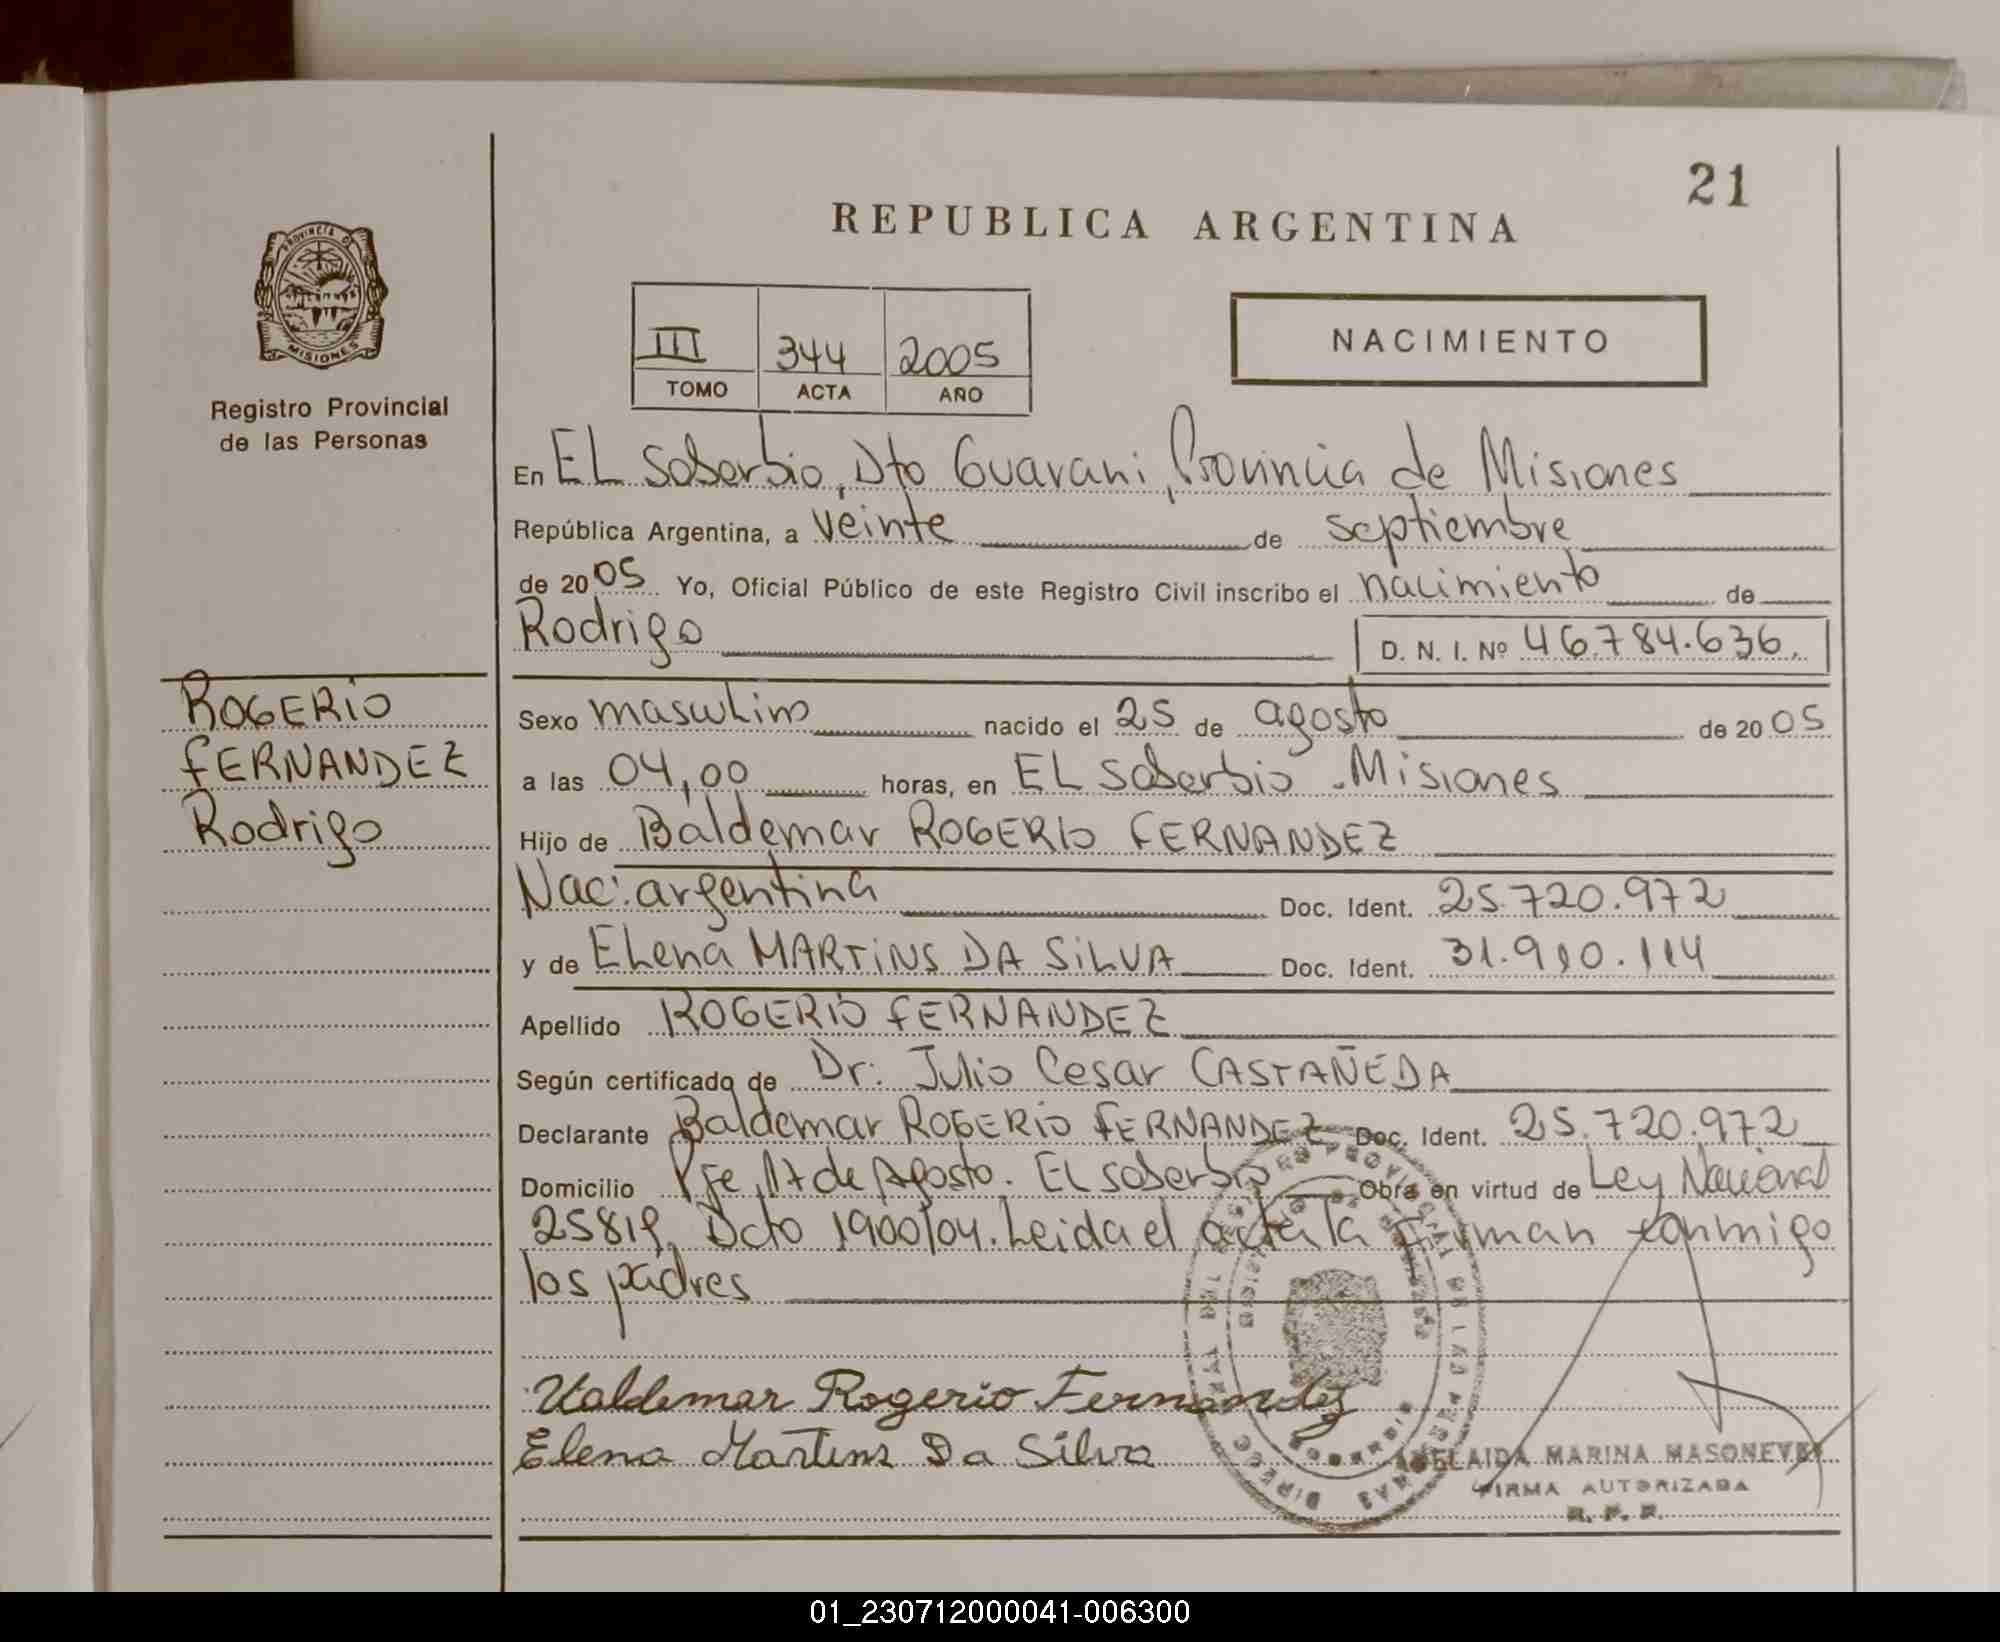 21
REPUBLICA ARGENTINA
PROVINCIA D
MISIONES
Registro Provincial
de las Personas
III 344 2005
TOMO ACTA AÑO
NACIMIENTO
En EL Soberbio, Dto Guarani, Provincia de Misiones
República Argentina, a veinte de septiembre
de 2005 Yo, Oficial Público de este Registro Civil inscribo el nacimiento de
Rodrigo D. N. I. Nº 46.784.636.
ROGERIO
FERNANDEZ
Rodrigo
Sexo masculino nacido el 25 de agosto de 2005
a las 04,00 horas, en EL Soberbio - Misiones
Hijo de Baldemar ROGERIO FERNANDEZ
Nac: argentina Doc. Ident. 25.720.972
y de Elena MARTINS DA SILVA Doc. Ident. 31.910.114
Apellido ROGERIO FERNANDEZ
Según certificado de Dr. Julio Cesar CASTAÑEDA
Declarante Baldemar ROGERIO FERNANDEZ Doc. Ident. 25.720.972
Domicilio Pje 17 de Agosto. EL Soberbio Obra en virtud de Ley Nacional
25819, Dcto 1900/04. Leida el acta la firman conmigo
los padres
Valdemar Rogerio Fernandez
Elena Martins Da Silva
ADELAIDA MARINA MASONEVE
FIRMA AUTORIZADA
R. P. P.
01_230712000041-006300